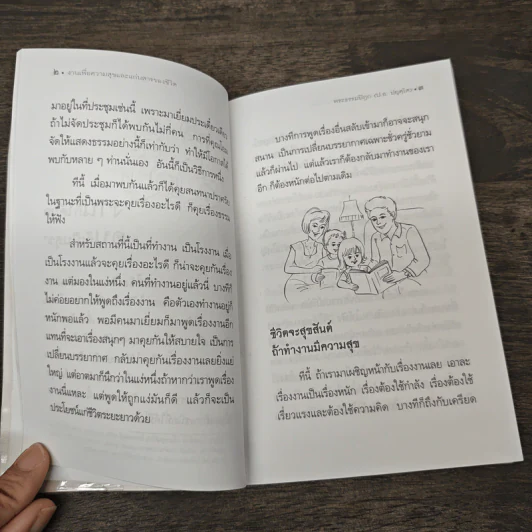 ๒ • งานเพื่อความสุขและแก่นสารของชีวิต
มาอยู่ในที่ประชุมเช่นนี้ เพราะมาเยี่ยมประเดี๋ยวเดียว
ถ้าไม่จัดประชุมก็ได้พบกันไม่กี่คน การที่คุณโยม
จัดให้แสดงธรรมอย่างนี้ก็เท่ากับว่า ทำให้มีโอกาสได้
พบกับหลาย ๆ ท่านนั่นเอง อันนี้ก็เป็นวิธีการหนึ่ง
ทีนี้ เมื่อมาพบกันแล้วก็ได้คุยสนทนาปราศรัย
ในฐานะที่เป็นพระจะคุยเรื่องอะไรดี ก็คุยเรื่องธรรม
ให้ฟัง
สำหรับสถานที่นี้เป็นที่ทำงาน เป็นโรงงาน เมื่อ
เป็นโรงงานแล้วจะคุยเรื่องอะไรดี ก็น่าจะคุยกันเรื่อง
งาน แต่มองในแง่หนึ่ง คนที่ทำงานอยู่แล้วนี่ บางที
ไม่ค่อยอยากให้พูดถึงเรื่องงาน คือตัวเองทำงานอยู่ก็
หนักพอแล้ว พอมีคนมาเยี่ยมก็มาพูดเรื่องงานอีก
แทนที่จะเอาเรื่องสนุกๆ มาคุยกันให้สบายใจ เป็นการ
เปลี่ยนบรรยากาศ กลับมาคุยกันเรื่องงานเลยยิ่งแย่
ใหญ่ แต่อาตมาก็นึกว่าในแง่หนึ่งถ้าหากว่าเราพูดเรื่อง
งานนี่แหละ แต่พูดให้ถูกแง่มันก็ดี แล้วก็จะเป็น
ประโยชน์แก่ชีวิตระยะยาวด้วย
พระพรหมคุณาภรณ์ (ป.อ. ปยุตฺโต) • ๓
บางทีการพูดเรื่องอื่นสลับเข้ามาก็อาจจะสนุก
สนาน เป็นการเปลี่ยนบรรยากาศเฉพาะชั่วครู่ชั่วยาม
แล้วก็ผ่านไป แต่แล้วเราก็ต้องกลับมาทำงานของเรา
อีก ก็ต้องหนักต่อไปตามเดิม
ชีวิตจะสุขสันต์
ถ้าทำงานมีความสุข
ทีนี้ ถ้าเรามาเผชิญหน้ากับเรื่องงานเลย เอาละ
เรื่องงานเป็นเรื่องหนัก เรื่องต้องใช้กำลัง เรื่องต้องใช้
เรี่ยวแรงและต้องใช้ความคิด บางทีก็ถึงกับเครียด